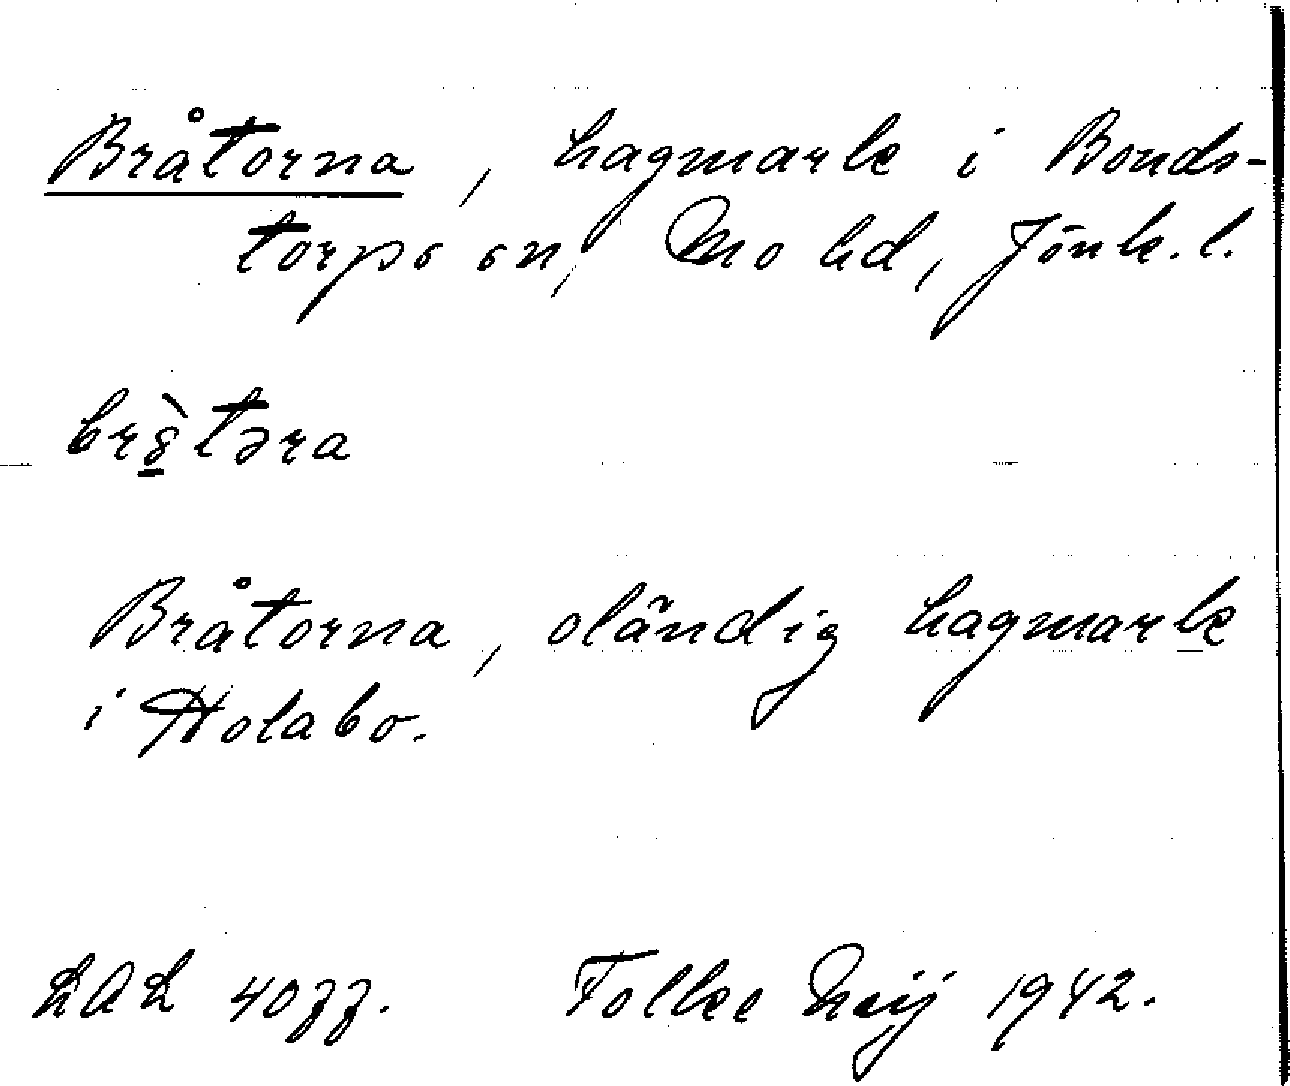 Bråtorna, hagmark i Bonds-
torps sn, Mo hd, Jönk. l.
br 8̲̀təra
Bråtorna, oländig hagmark
i Holabo.
LAL 4077. Folke Neij 1942.